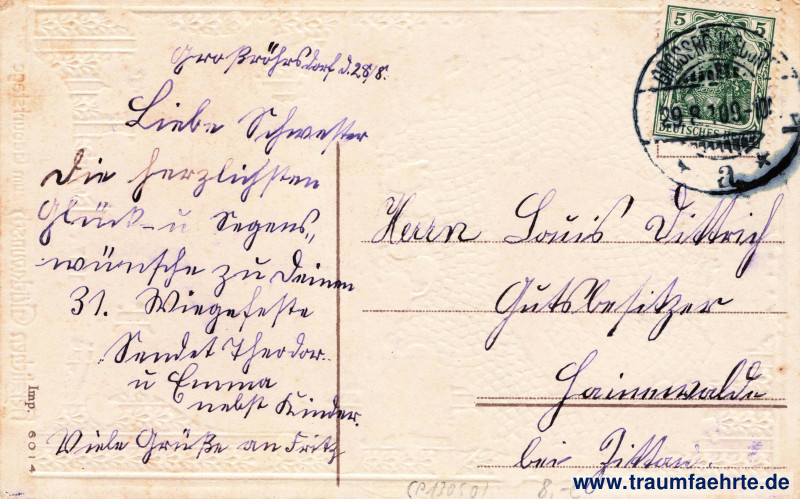 Großröhrsdorf d. 28/8.
Liebe Schwester
Die herzlichsten
Glück- u Segens„
wünsche zu Deinen
31. Wiegefeste
Sendet Theodor
u Emma
nebst Kinder.
Viele Grüße an Fritz
Herrn Louis Dittrich
Gutsbesitzer
Hainewalde
bei Zittau.
5 5
DEUTSCHES
29.8.09
a
Imp. 6014
8,-
www.traumfaehrte.de